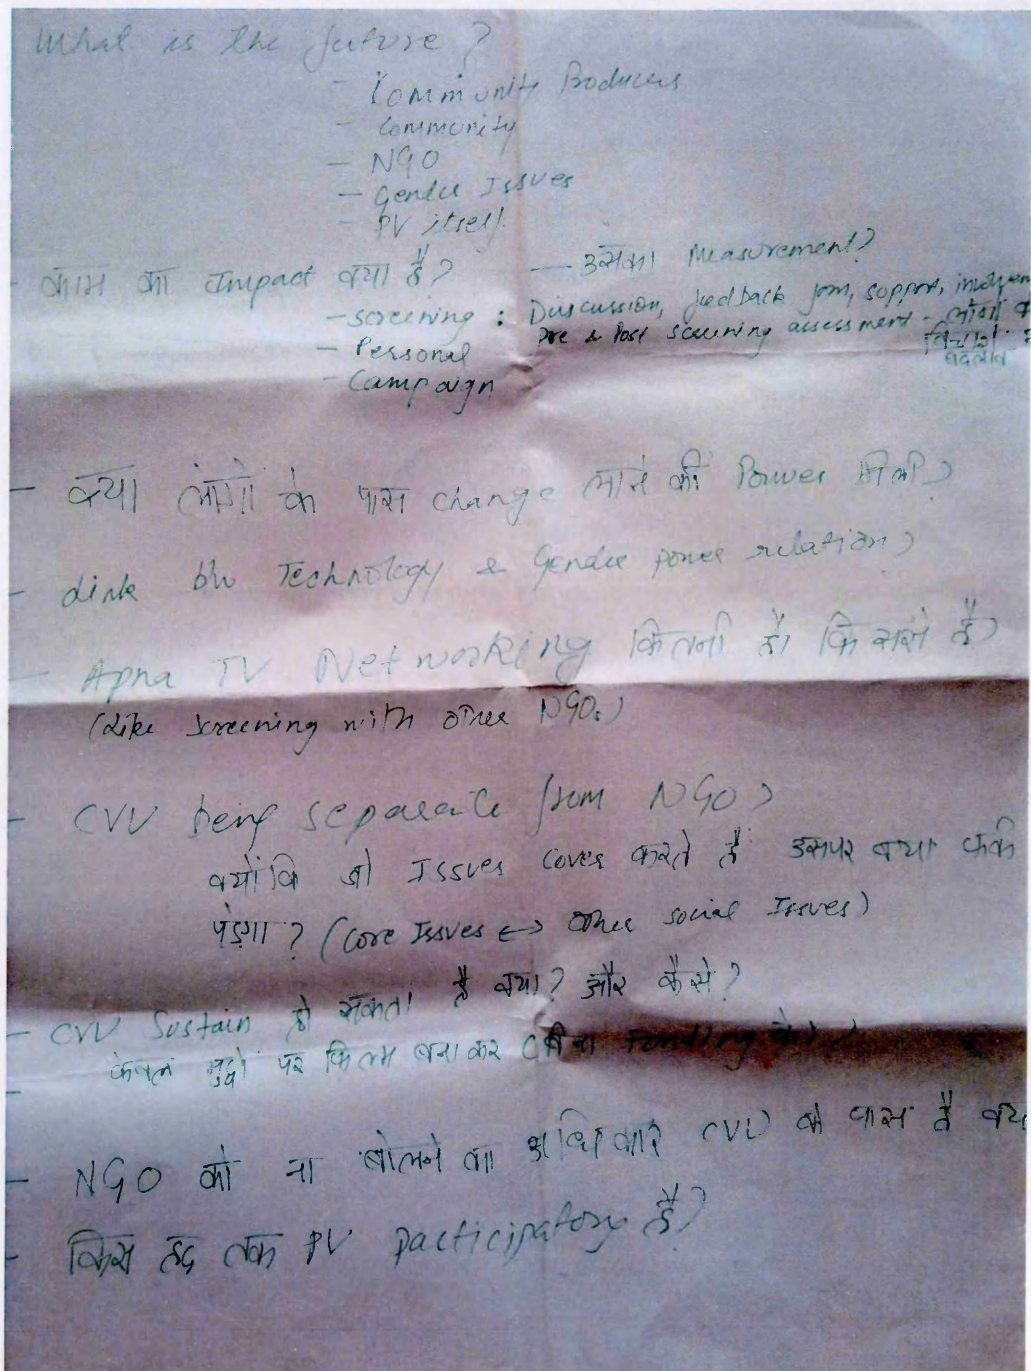 What is the future?
- Community Producers
- Community
- NGO
- Gender Issues
- PV itself.
- काम का Impact क्या है? — उसका Measurement?
- screening : Discussion, feedback form, support,
Pre & Post screening assessment - लोगों
- Personal
बदलाव
- Campaign
- क्या लोगों के पास change लाने की Power मिली?
- Link b/w Technology & Gender power relation?
- Apna TV Networking कितनी है। किससे है?
(Like screening with other NGOs)
- CVU being separate from NGO?
क्योंकि जो Issues cover करते हैं उसपर क्या फर्क
पड़ेगा? (Core Issues ↔ Other social Issues)
- CVU Sustain हो सकता है क्या? और कैसे?
केवल मुद्दों पर फिल्म बनाकर (बिना Funding के)?
-
- NGO को ना बोलने का अधिकार CVU के पास है
- किस हद तक PV participatory है?